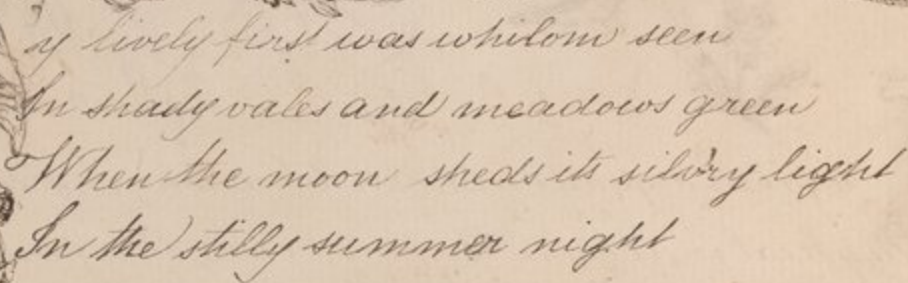 y lively first was whilom seen
In shady vales and meadows green
When the moon sheds its silv'ry light
In the stilly summer night